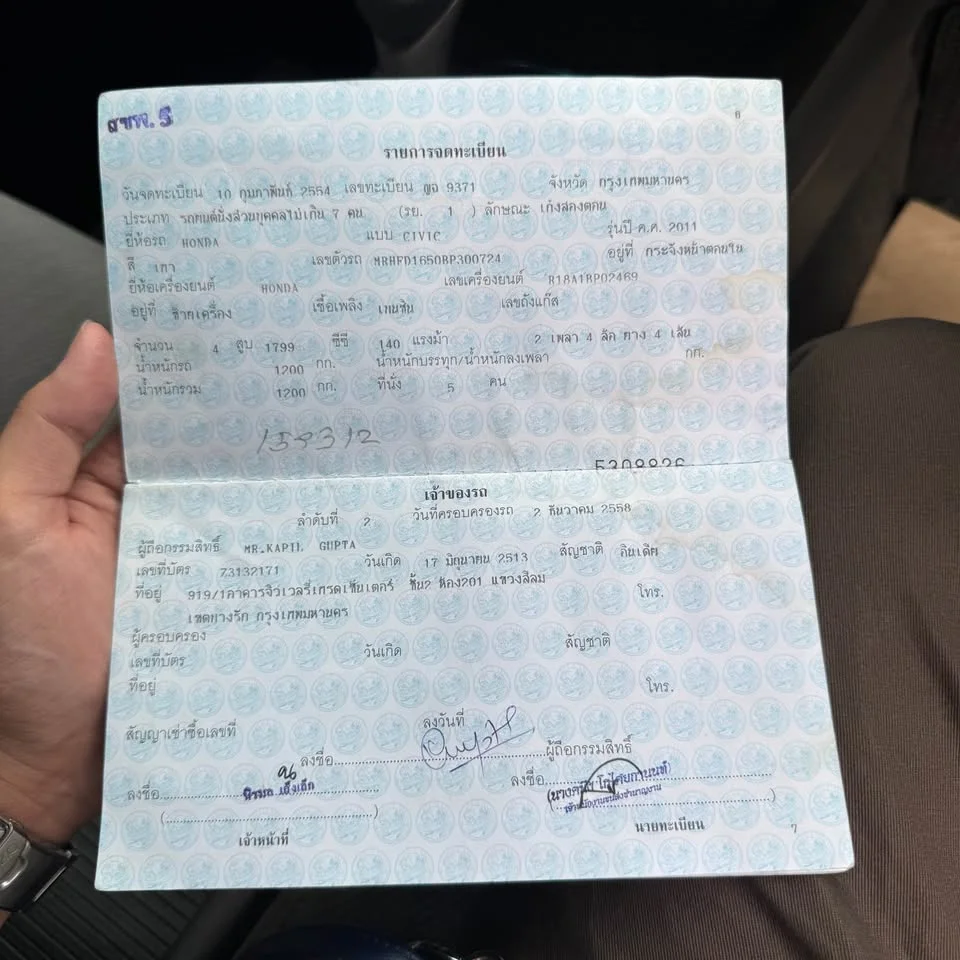 สขพ. 5
6
รายการจดทะเบียน
วันจดทะเบียน 10 กุมภาพันธ์ 2554 เลขทะเบียน ญจ 9371 จังหวัด กรุงเทพมหานคร
ประเภท รถยนต์นั่งส่วนบุคคลไม่เกิน 7 คน (รย. 1 ) ลักษณะ เก๋งสองตอน
ยี่ห้อรถ HONDA แบบ CIVIC รุ่นปี ค.ศ. 2011
สี เทา เลขตัวรถ MRHFD1650BP300724 อยู่ที่ กระจังหน้าตอนใน
ยี่ห้อเครื่องยนต์ HONDA เลขเครื่องยนต์ R18A1BP02469
อยู่ที่ ซ้ายเครื่อง เชื้อเพลิง เบนซิน เลขถังแก๊ส
จำนวน 4 สูบ 1799 ซีซี 140 แรงม้า 2 เพลา 4 ล้อ ยาง 4 เส้น
น้ำหนักรถ 1200 กก. น้ำหนักบรรทุก/น้ำหนักลงเพลา กก.
น้ำหนักรวม 1200 กก. ที่นั่ง 5 คน
5308826
เจ้าของรถ
ลำดับที่ 2 วันที่ครอบครองรถ 2 ธันวาคม 2558
ผู้ถือกรรมสิทธิ์ MR.KAPIL GUPTA
เลขที่บัตร Z3132171 วันเกิด 17 มิถุนายน 2513 สัญชาติ อินเดีย
ที่อยู่ 919/1อาคารจิวเวลรี่เทรดเซ็นเตอร์ ชั้น2 ห้อง201 แขวงสีลม โทร.
เขตบางรัก กรุงเทพมหานคร
ผู้ครอบครอง
เลขที่บัตร วันเกิด สัญชาติ
ที่อยู่ โทร.
สัญญาเช่าซื้อเลขที่ ลงวันที่
ลงชื่อ ผู้ถือกรรมสิทธิ์
ลงชื่อ ลงชื่อ
เจ้าหน้าที่ นายทะเบียน
7